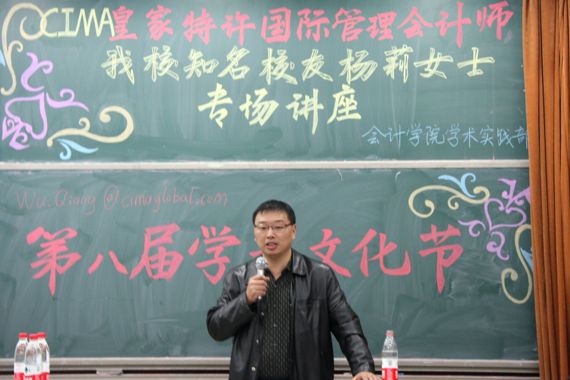 CIMA皇家特许国际管理会计师
我校知名校友杨莉女士
专场讲座
会计学院学术实践部
Wu.Qiang@cimaglobal.com
第八届学 文化节